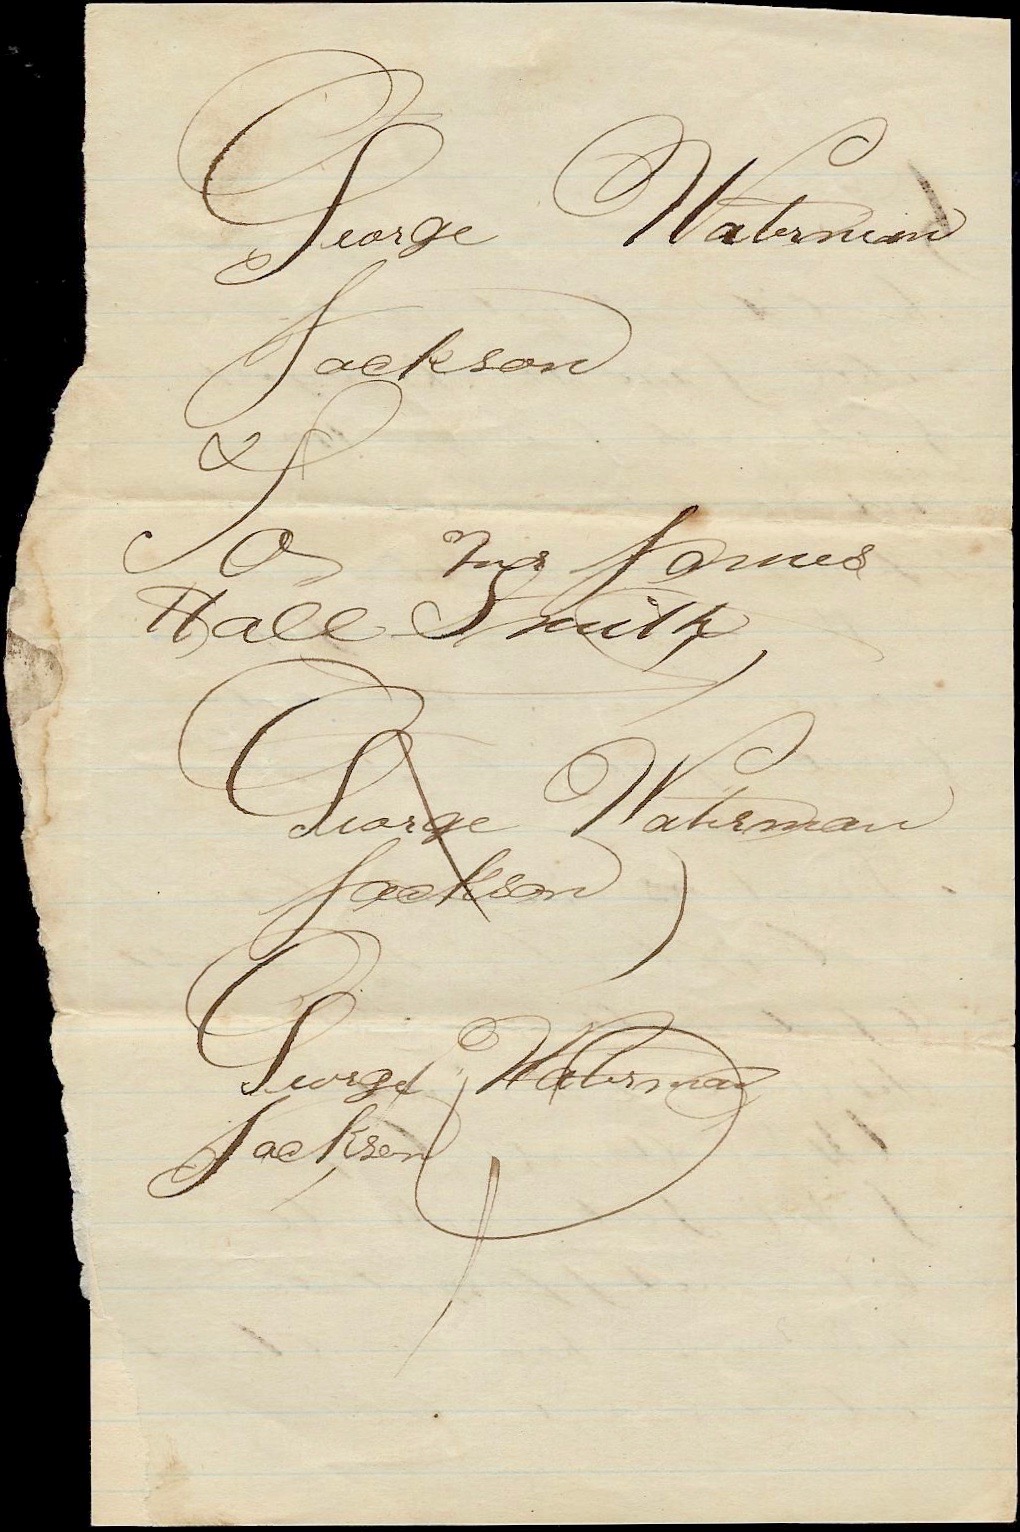 George Waterman
Jackson
&
To Mrs James
Hall Smith
George Waterman
Jackson
George Waterman
Jackson